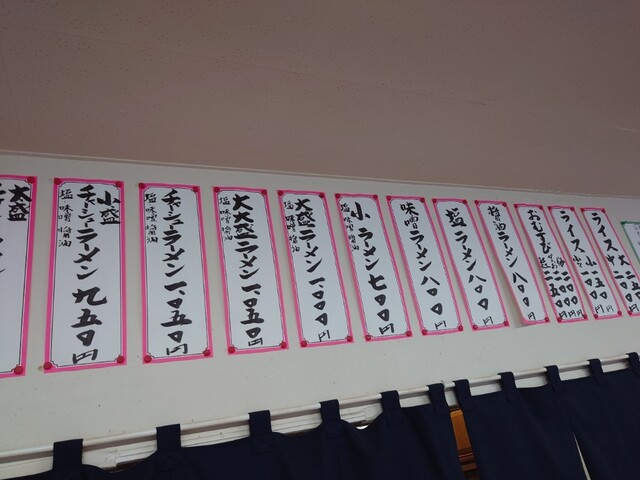 ライス 大 二五〇円
中 二〇〇円
小 一五〇円
おむすび
醤油ラーメン 八〇〇円
塩ラーメン 八〇〇円
味噌ラーメン 八〇〇円
小ラーメン 七〇〇円
塩 味噌 醤油
大盛ラーメン 一、〇〇〇円
塩 味噌 醤油
大大盛ラーメン 一、〇五〇円
塩 味噌 醤油
チャーシューラーメン 一、〇五〇円
塩 味噌 醤油
小盛
チャーシューラーメン 九五〇円
塩 味噌 醤油
大盛